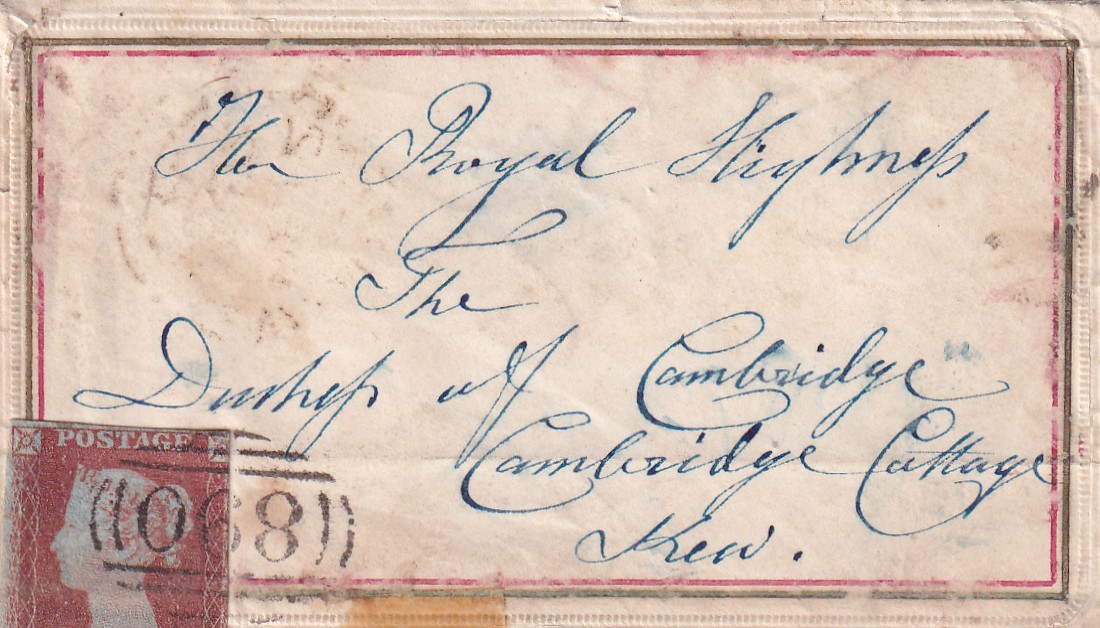 Her Royal Highness
The
Duchess of Cambridge
Cambridge Cottage
Kew.
POSTAGE
068